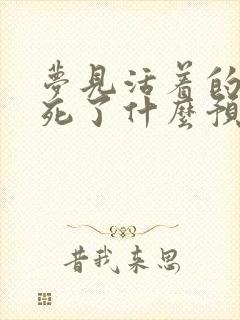 夢見活着的
死了什麼預
昔我来思